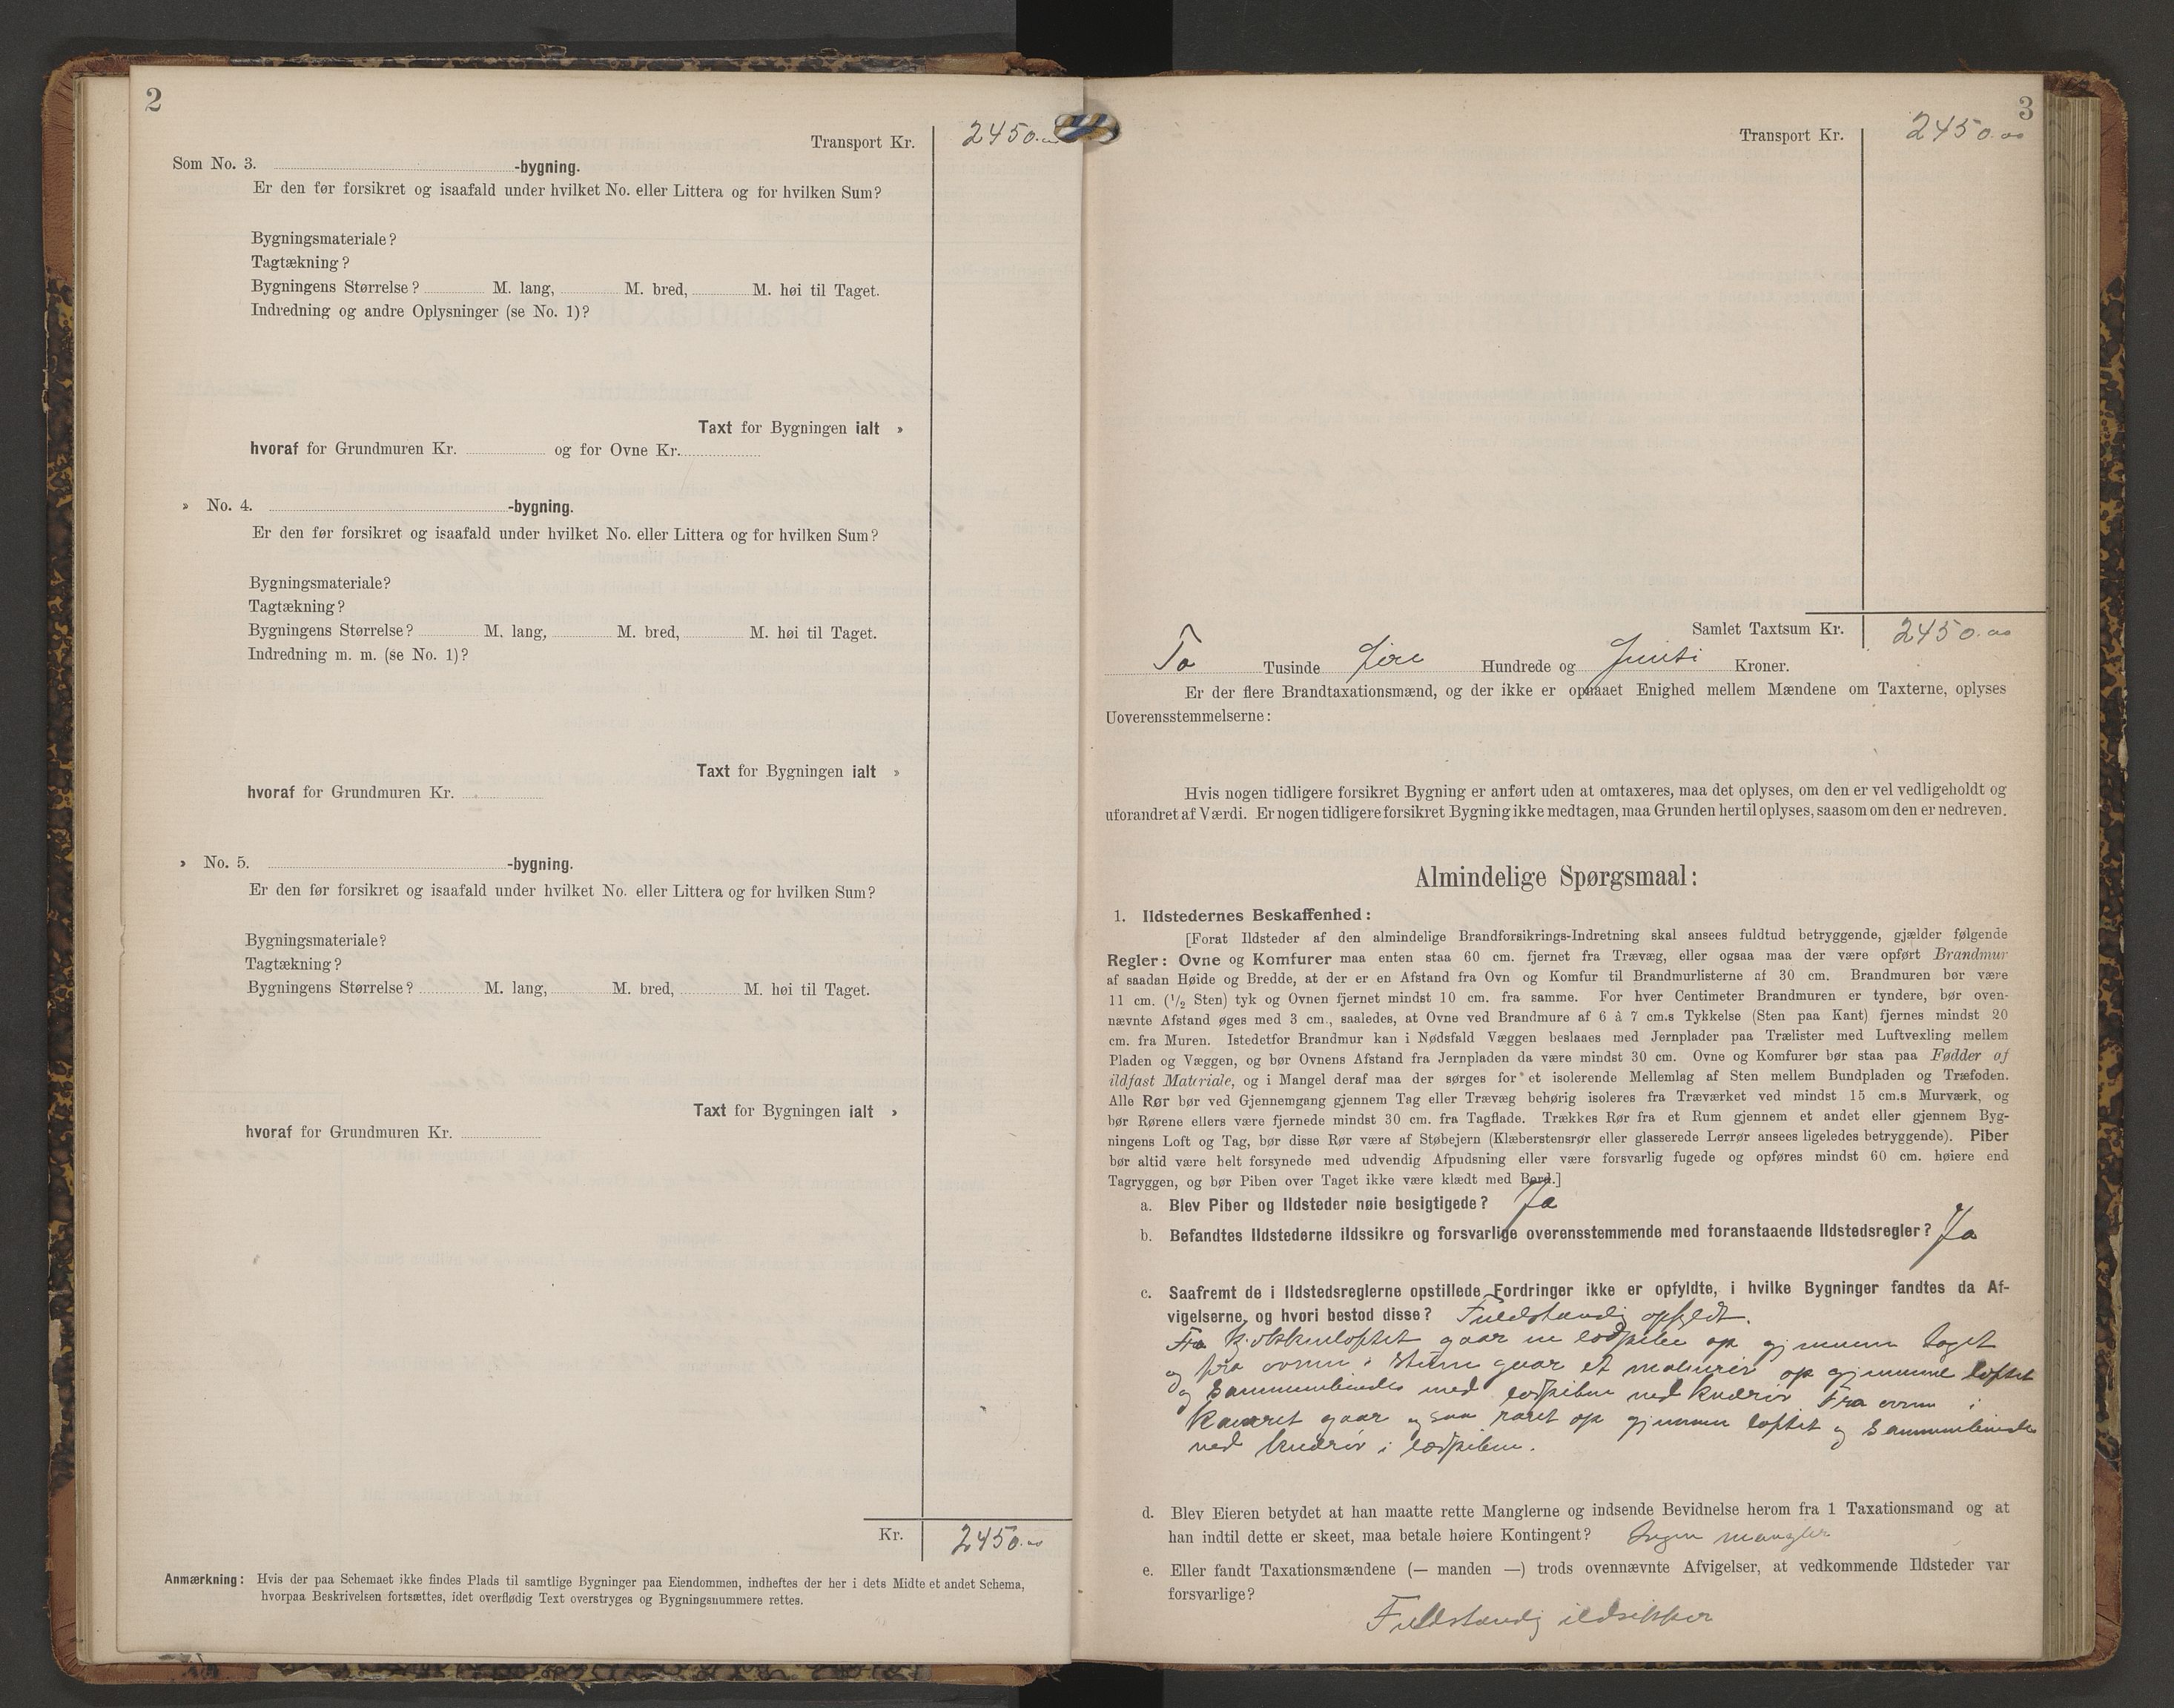 2
Transport Kr. 2450.00
Som No. 3. -bygning.
Er den før forsikret og isaafald under hvilket No. eller Littera og for hvilken Sum?
Bygningsmateriale?
Tagtækning?
Bygningens Størrelse? M. lang, M. bred, M. høi til Taget.
Indredning og andre Oplysninger (se No. 1)?
Taxt for Bygningen ialt »
hvoraf for Grundmuren Kr. og for Ovne Kr.
» No. 4. -bygning.
Er den før forsikret og isaafald under hvilket No. eller Littera og for hvilken Sum?
Bygningsmateriale?
Tagtækning?
Bygningens Størrelse? M. lang, M. bred, M. høi til Taget.
Indredning m. m. (se No. 1)?
Taxt for Bygningen ialt »
hvoraf for Grundmuren Kr.
» No. 5. -bygning.
Er den før forsikret og isaafald under hvilket No. eller Littera og for hvilken Sum?
Bygningsmateriale?
Tagtækning?
Bygningens Størrelse? M. lang, M. bred, M. høi til Taget.
Taxt for Bygningen ialt »
hvoraf for Grundmuren Kr.
Kr. 2450.00
Anmærkning: Hvis der paa Schemaet ikke findes Plads til samtlige Bygninger paa Eiendommen, indheftes der her i dets Midte et andet Schema,
hvorpaa Beskrivelsen fortsættes, idet overflødig Text overstryges og Bygningsnummere rettes.
3
Transport Kr. 2450.00
Samlet Taxtsum Kr. 2450.00
To Tusinde fire Hundrede og femti Kroner.
Er der flere Brandtaxationsmænd, og der ikke er opnaaet Enighed mellem Mændene om Taxterne, oplyses
Uoverensstemmelserne:
Hvis nogen tidligere forsikret Bygning er anført uden at omtaxeres, maa det oplyses, om den er vel vedligeholdt og
uforandret af Værdi. Er nogen tidligere forsikret Bygning ikke medtagen, maa Grunden hertil oplyses, saasom om den er nedreven.
Almindelige Spørgsmaal:
1. Ildstedernes Beskaffenhed:
[Forat Ildsteder af den almindelige Brandforsikrings-Indretning skal ansees fuldtud betryggende, gjælder følgende
Regler: Ovne og Komfurer maa enten staa 60 cm. fjernet fra Trævæg, eller ogsaa maa der være opført Brandmur
af saadan Høide og Bredde, at der er en Afstand fra Ovn og Komfur til Brandmurlisterne af 30 cm. Brandmuren bør være
11 cm. (1/2 Sten) tyk og Ovnen fjernet mindst 10 cm. fra samme. For hver Centimeter Brandmuren er tyndere, bør oven-
nævnte Afstand øges med 3 cm., saaledes, at Ovne ved Brandmure af 6 à 7 cm.s Tykkelse (Sten paa Kant) fjernes mindst 20
cm. fra Muren. Istedetfor Brandmur kan i Nødsfald Væggen beslaaes med Jernplader paa Trælister med Luftvexling mellem
Pladen og Væggen, og bør Ovnens Afstand fra Jernpladen da være mindst 30 cm. Ovne og Komfurer bør staa paa Fødder af
ildfast Materiale, og i Mangel deraf maa der sørges for et isolerende Mellemlag af Sten mellem Bundpladen og Træfoden.
Alle Rør bør ved Gjennemgang gjennem Tag eller Trævæg behørig isoleres fra Træværket ved mindst 15 cm.s Murværk, og
bør Rørene ellers være fjernede mindst 30 cm. fra Tagflade. Trækkes Rør fra et Rum gjennem et andet eller gjennem Byg-
ningens Loft og Tag, bør disse Rør være af Støbejern (Klæberstensrør eller glasserede Lerrør ansees ligeledes betryggende). Piber
bør altid være helt forsynede med udvendig Afpudsning eller være forsvarlig fugede og opføres mindst 60 cm. høiere end
Tagryggen, og bør Piben over Taget ikke være klædt med Bord.]
a. Blev Piber og Ildsteder nøie besigtigede? Ja
b. Befandtes Ildstederne ildssikre og forsvarlige overensstemmende med foranstaaende Ildstedsregler? Ja
c. Saafremt de i Ildstedsreglerne opstillede Fordringer ikke er opfyldte, i hvilke Bygninger fandtes da Af-
vigelserne, og hvori bestod disse? Fuldstændig opfyldt.
Fra kjøkkenloftet gaar en lodpibe op gjennem taget
og fra ovnen i stuen gaar et op gjennem loftet
og sammenbindes med lodpiben ved knærør Fra ovnen i
gaar og saa røret op gjennem loftet og sammenbindes
ved knærør i lodpiben.
d. Blev Eieren betydet at han maatte rette Manglerne og indsende Bevidnelse herom fra 1 Taxationsmand og at
han indtil dette er skeet, maa betale høiere Kontingent? Ingen mangler
e. Eller fandt Taxationsmændene (— manden —) trods ovennævnte Afvigelser, at vedkommende Ildsteder var
forsvarlige?
Fuldstændig ildsikker